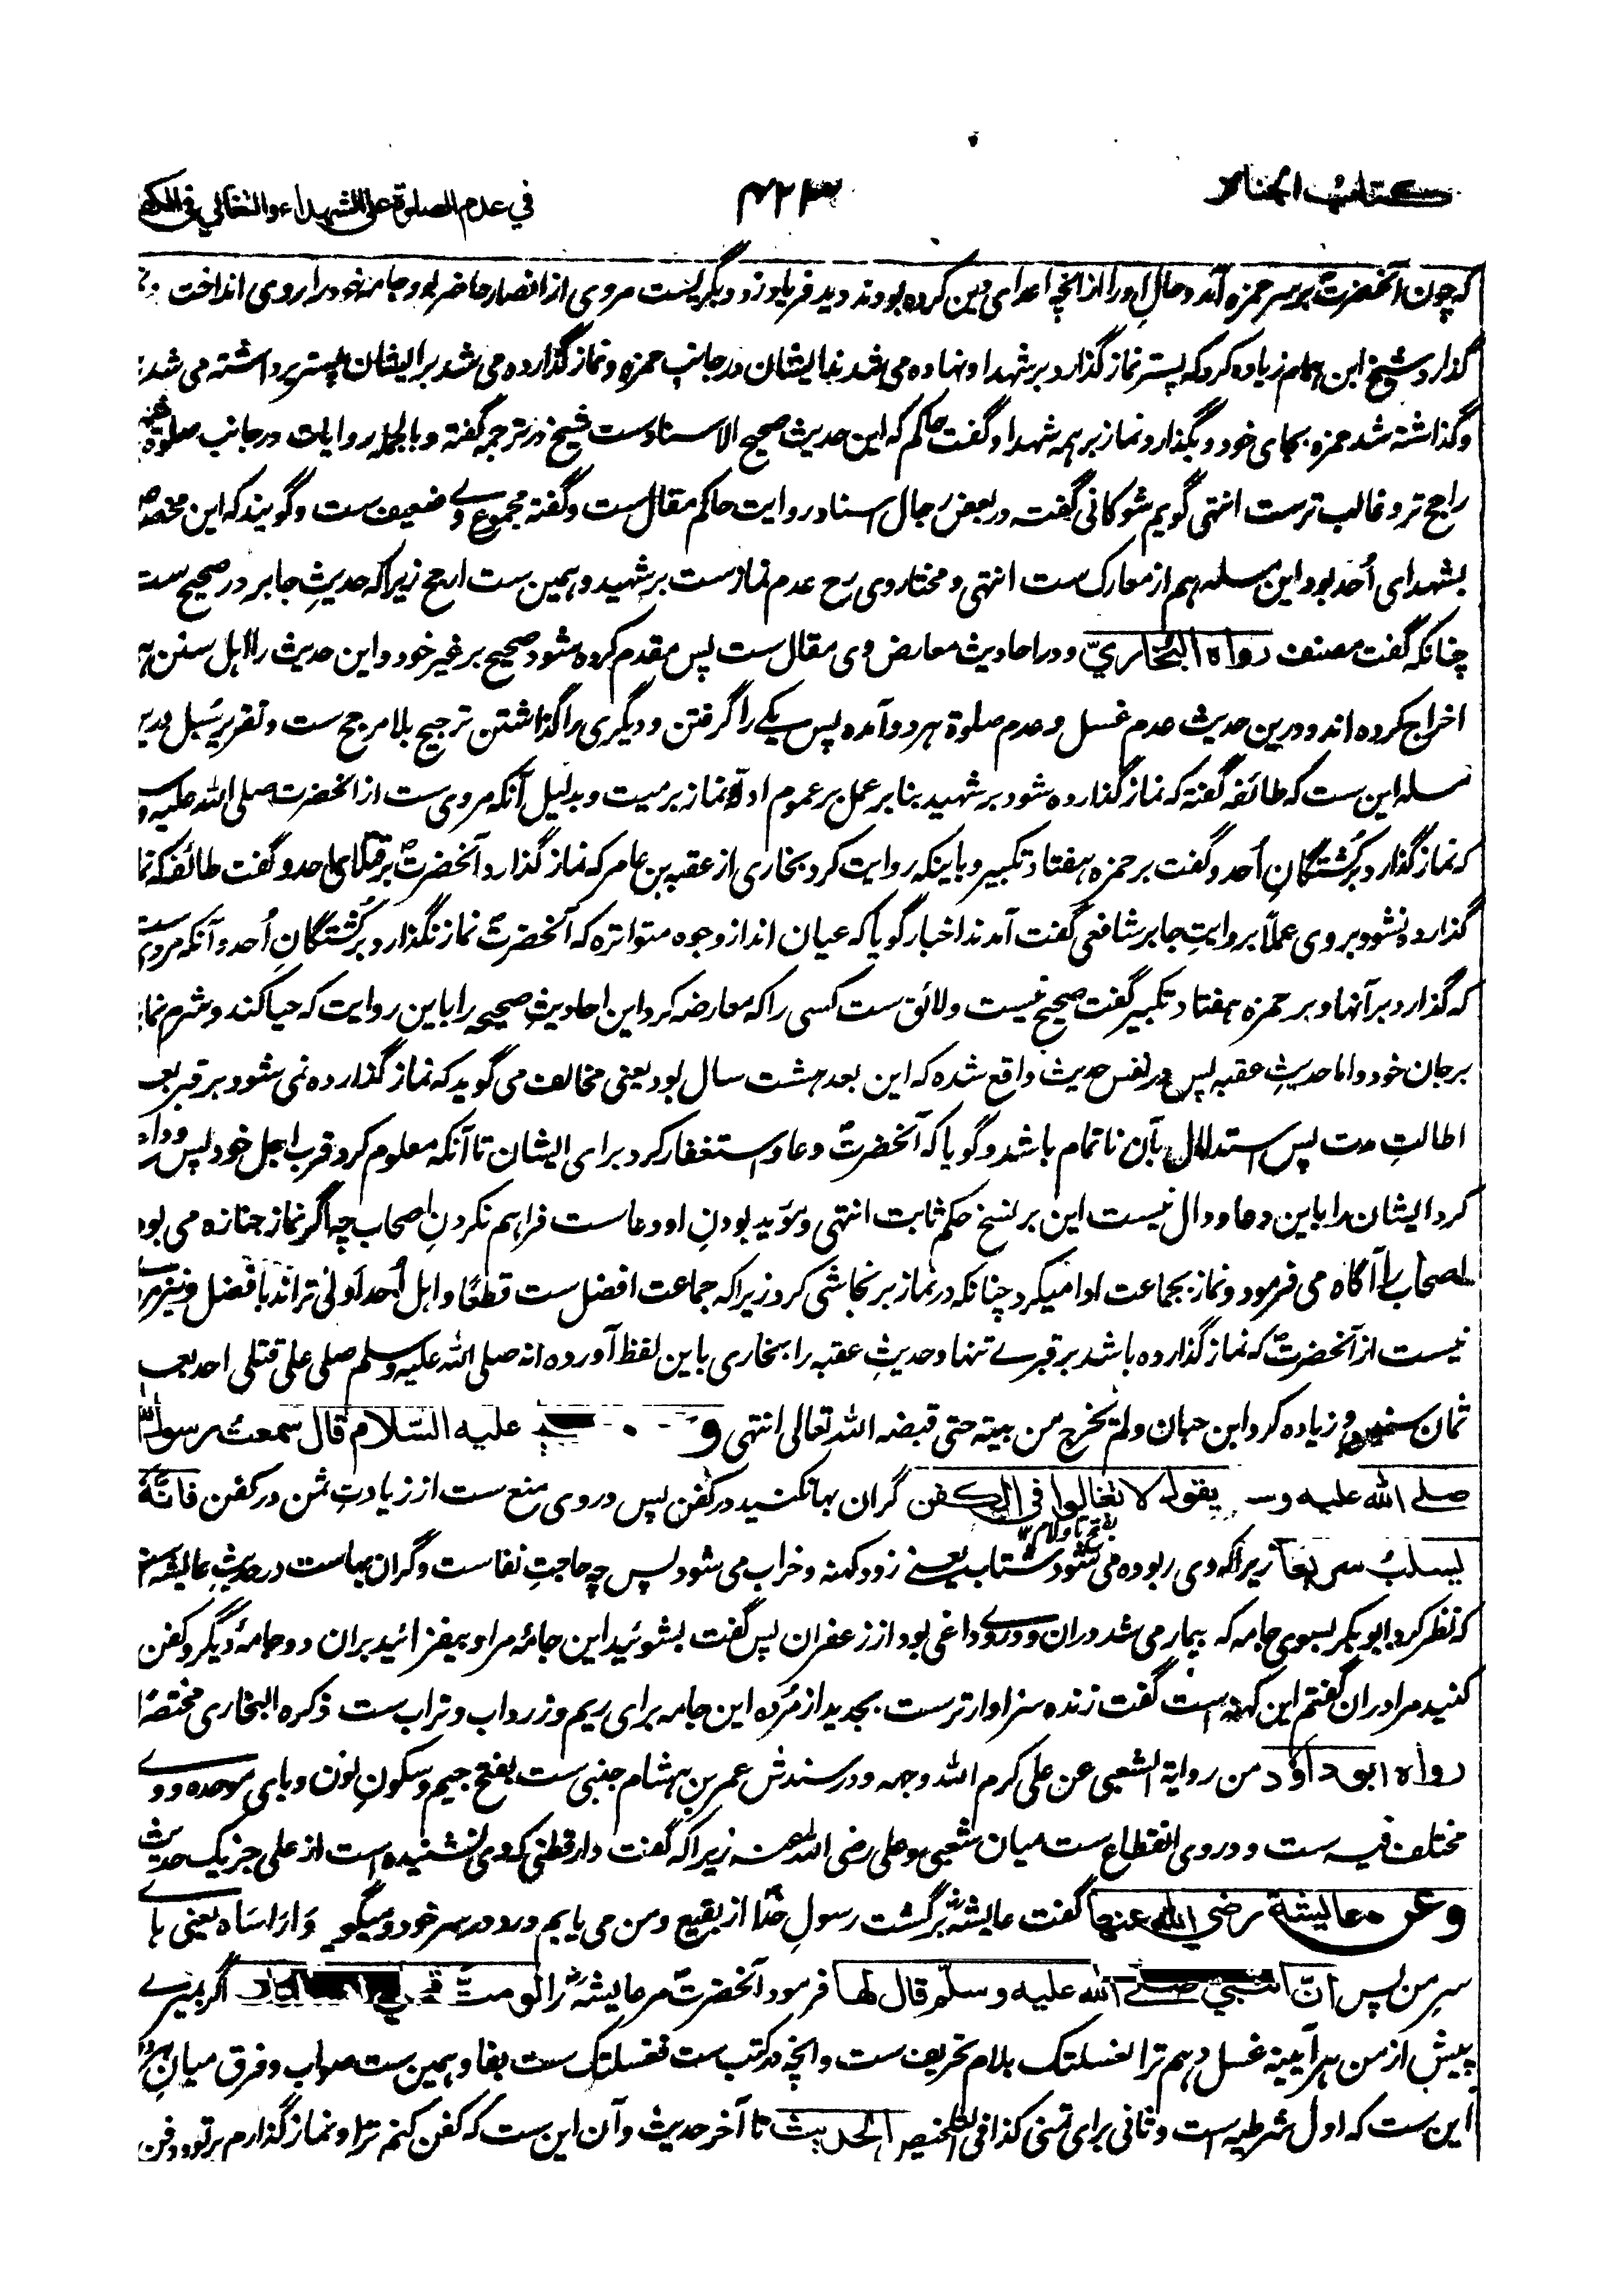 كتاب الجنائز
۴۲۳
في عدم الصلوة على الشهداء والتغالي في الكفن
که چون آنحضرت بر سر حمزه آمد و حال او را از آنچه اعدای دین کرده بودند دید فریاد زد و بگریست مردی از انصار حاضر بود جامه خود را بروی انداخت
گذارد و شیخ ابن همام زیاده کرد که پستر نماز گذارد بر شهدا و نهاده می شد نبا ایشان در جانب حمزه و نماز گذارده می شد بر ایشان پستر برداشته می شدند
و گذاشته شد حمزه بجای خود و بگذارد نماز بر همه شهدا و گفت حاکم که این حدیث صحیح الاسناد ست شیخ در ترجمه گفته و بالجمله روایات در جانب صلوة
راجح تر و غالب ترست انتهی گویم شوکانی گفته در بعض رجال اسناد روایت حاکم مقال ست و گفته مجموع وے ضعیف ست و گویند که این مختص
بشهدای اُحد بود این مسله هم از معارک ست انتهی و مختار وی رح عدم نمازست بر شهید و همین ست ارجح زیرا که حدیثِ جابر در صحیح ست
چنانکه گفت مصنف رواه البخاريّ و در احادیث معارض وی مقال ست پس مقدم کرده شود صحیح بر غیر خود و این حدیث را اهل سنن
اخراج کرده اند و درین حدیث عدم غسل و عدم صلوة هر دو آمده پس یکے را گرفتن و دیگری را گذاشتن ترجیح بلا مرجح ست و تقریر سُبل درین
مسله این ست که طائفه گفته که نماز گذارده شود بر شهید بنا بر عمل بر عموم ادلّهٔ نماز بر میت و بدلیل آنکه مروی ست از آنحضرت صلی الله علیه و
که نماز گذارد بر کُشتگانِ اُحد و گفت بر حمزه هفتاد تکبیر و باینکه روایت کرد بخاری از عقبه بن عامر که نماز گذارد آنحضرت بر قتلای احد و گفت طائفه که نماز
گذارده نشود بروی عملاً بروایتِ جابر شافعی گفت آمدند اخبار گویا که عیان اند از وجوه متواتره که آنحضرت نماز نگذارد بر کُشتگانِ اُحد و آنکه مروی ست
که گذارد بر آنها و بر حمزه هفتاد تکبیر گفت صحیح نیست و لائق ست کسی را که معارضه کرد این احادیثِ صحیحه را باین روایت که حیا کند و شرم نماید
بر جان خود و اما حدیثِ عقبه پس در نفس حدیث واقع شده که این بعد هشت سال بود یعنی مخالف می گوید که نماز گذارده نمی شود بر قبر بعد
اطالتِ مدت پس استدلال بآن ناتمام باشد و گویا که آنحضرت دعا و استغفار کرد برای ایشان تا آنکه معلوم کرد قرب اجل خود پس وداع
کرد ایشان را باین دعا و دال نیست این بر نسخ حکم ثابت انتهی و مؤید بودنِ او دعاست فراهم نکردنِ اصحاب چه اگر نماز جنازه می بود
اصحاب را آگاه می فرمود و نماز بجماعت ادا میکرد چنانکه در نماز بر نجاشی کرد زیرا که جماعت افضل ست قطعًا و اهل اُحد اولٰی تر اند بافضل و نیز مروی
نیست از آنحضرت که نماز گذارده باشد بر قبرے تنها و حدیثِ عقبه را بخاری باین لفظ آورده انه صلی الله علیه وسلم صلی علی قتلی احد بعد
ثمان سنین و زیاده کرد ابن حبان ولم یخرج من بیته حتی قبضه الله تعالی انتهی و علیه السّلام قال سمعتُ رسول الله
صلے الله علیه وسـ یقول لا تغالوا فی الکفن گران بها نکنید در کفن پس در وی منع ست از زیادتِ ثمن در کفن فانّهٗ
بفتح تا و لام
یسلبُ سریعًا زیرا که وی ربوده می شود شتاب یعنے زود کهنه و خراب می شود پس چه حاجتِ نفاست و گران بهاست در حدیثِ عایشه
که نظر کرد ابوبکر بسوی جامه که بیمار می شد دران و دروے داغی بود از زعفران پس گفت بشوئید این جامهٔ مرا و بیفزائید بران دو جامهٔ دیگر و کفن
کنید مرا دران گفتم این کهنه است گفت زنده سزاوار ترست بجدید از مُرده این جامه برای ریم و زرداب و تراب ست ذکره البخاری مختصرًا
رواه ابوداؤد من روایة الشعبی عن علی کرم الله وجهه و در سندش عمر بن هشام جنبی ست بفتح جیم و سکونِ نون و بای موحده و وے
مختلف فیه ست و در وی انقطاع ست میان شعبی و علی رضی الله عنه زیرا که گفت دارقطنی که وی نشنیده است از علی جز یک حدیث
وعن عایشة رضي الله عنها گفت عایشه برگشت رسولِ خدا از بقیع و من می یابم درد در سر خود و میگویم وَارَاسَاه یعنی ہاے
سرِ من پس انّ النّبيّ صلے الله علیه وسلّم قال لها فرمود آنحضرت مر عایشه را لو متّ قبلي اگر بمیرے
پیش از من هر آیینه غسل دهم ترا لغسلتک بلام تحریف ست و آنچه در کتب ست فغسلتک ست بفا و همین ست صواب و فرق میانِ هر دو
این ست که اول شرطیه است و ثانی برای تمنی کذا فی التلخیص الحدیث تا آخر حدیث و آن این ست که کفن کنم ترا و نماز گذارم بر تو و دفن